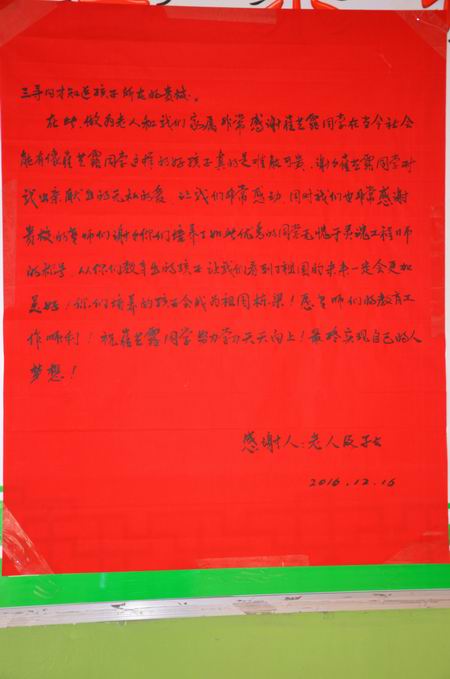 三寻问才知道孩子所在的贵校。
在此,做为老人和我们家属非常感谢崔芝露同学在当今社会
能有像崔芝露同学这样的好孩子真的是难能可贵,谢谢崔芝露同学对
我出亲献出的无私的爱,让我们非常感动,同时我们也非常感谢
贵校的老师们谢谢你们培养了如此优秀的同学无愧于灵魂工程师
的称号,从你们教育出的孩子让我们看到了祖国的未来一定会更加
美好!你们培养的孩子会成为祖国栋梁!愿老师们的教育工
作顺利!祝崔芝露同学努力学习天天向上!最终实现自己的人
梦想!
感谢人:老人及子女
2016.12.16